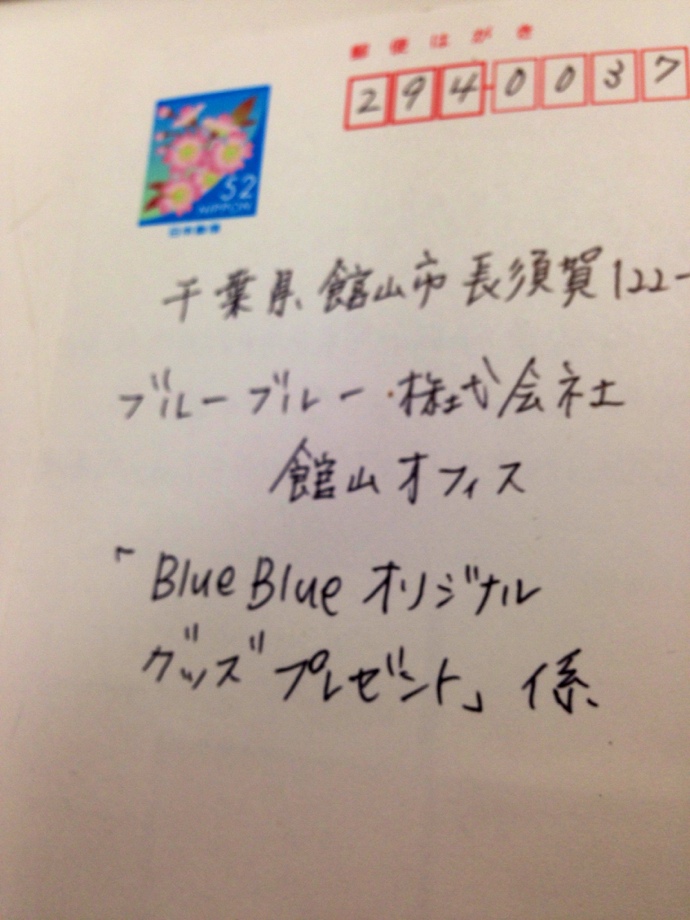 郵便はがき
294-0037
52
NIPPON
日本郵便
千葉県館山市長須賀122-
ブルーブルー株式会社
館山オフィス
「BlueBlueオリジナル
グッズプレゼント」係